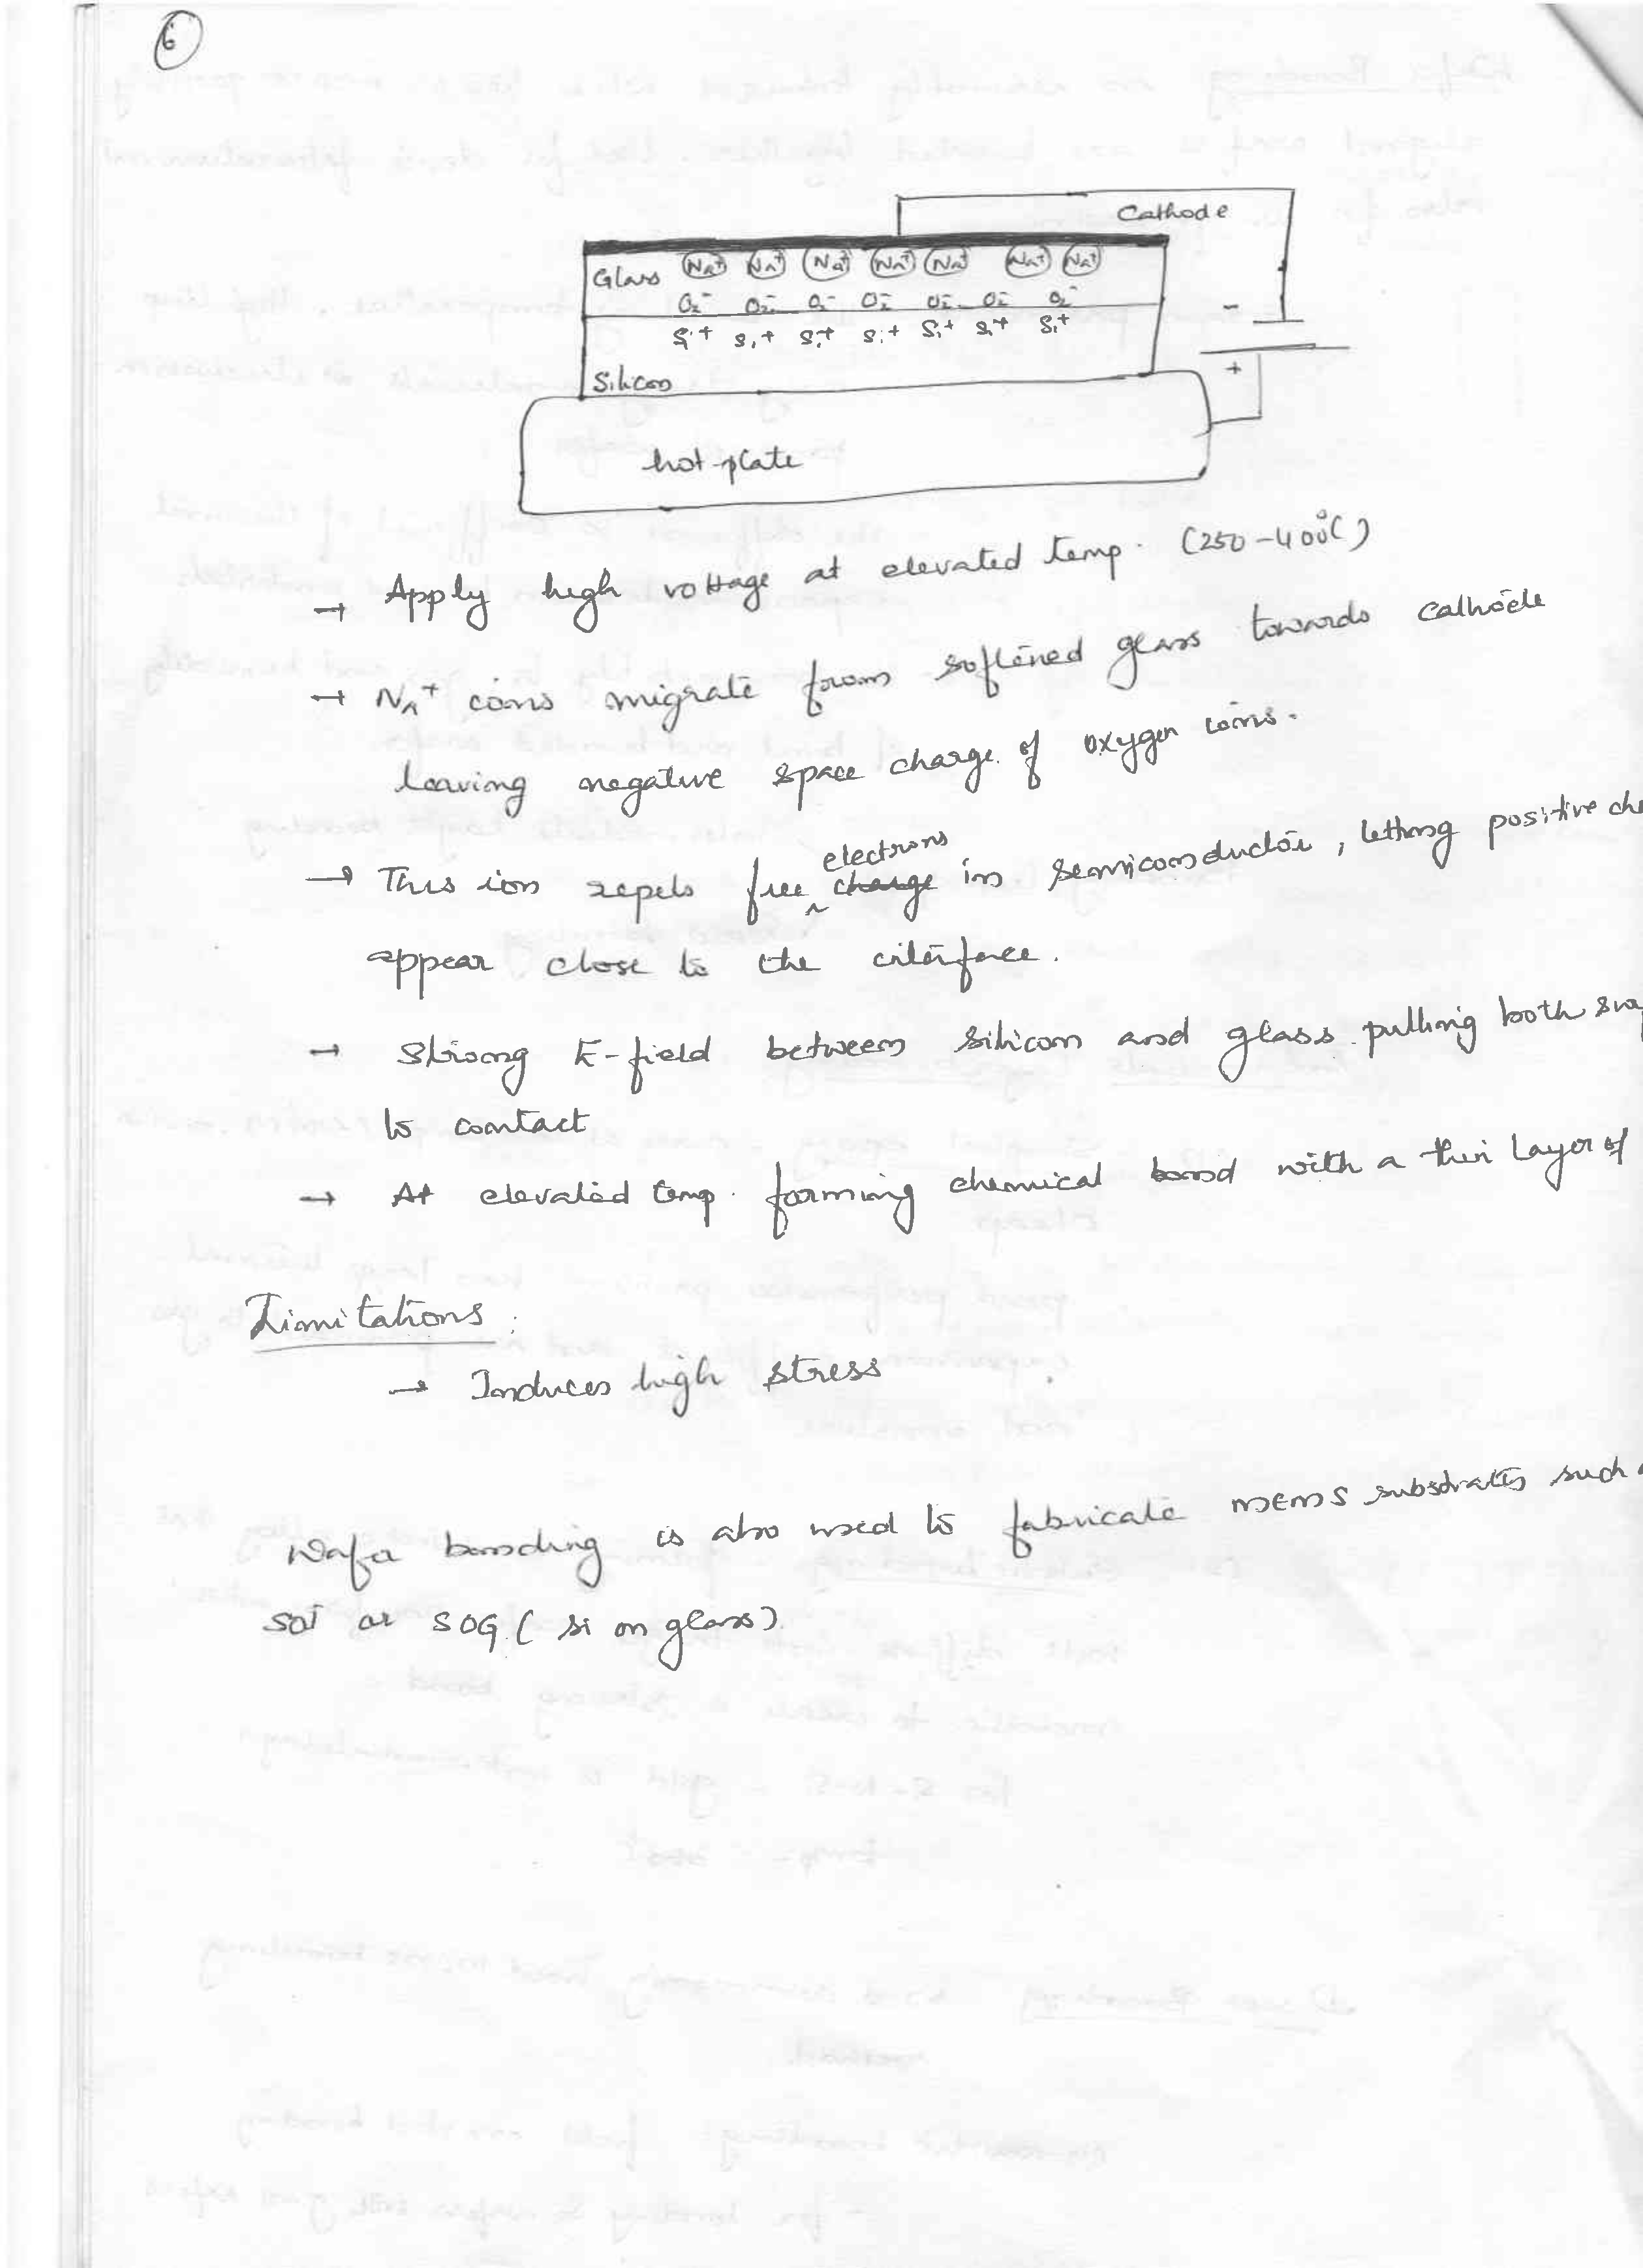 6
Cathode
Glass Na+ Na+ Na+ Na+ Na+ Na+ Na+
O2- O2- O2- O2- O2- O2- O2-
-
Si+ Si+ Si+ Si+ Si+ Si+ Si+
+
Silicon
hot plate
→ Apply high voltage at elevated temp. (250-400°C)
→ Na+ ions migrate from softened glass towards cathode
leaving negative space charge of oxygen ions.
electrons
→ This ion repels free charge in semiconductor, letting positive
appear close to the interface.
→ Strong E-field between silicon and glass pulling both
to contact
→ At elevated temp. forming chemical bond with a thin layer of
Limitations:
→ Induces high stress
Wafer bonding is also used to fabricate MEMS substrates such
SOI or SOG (si on glass)